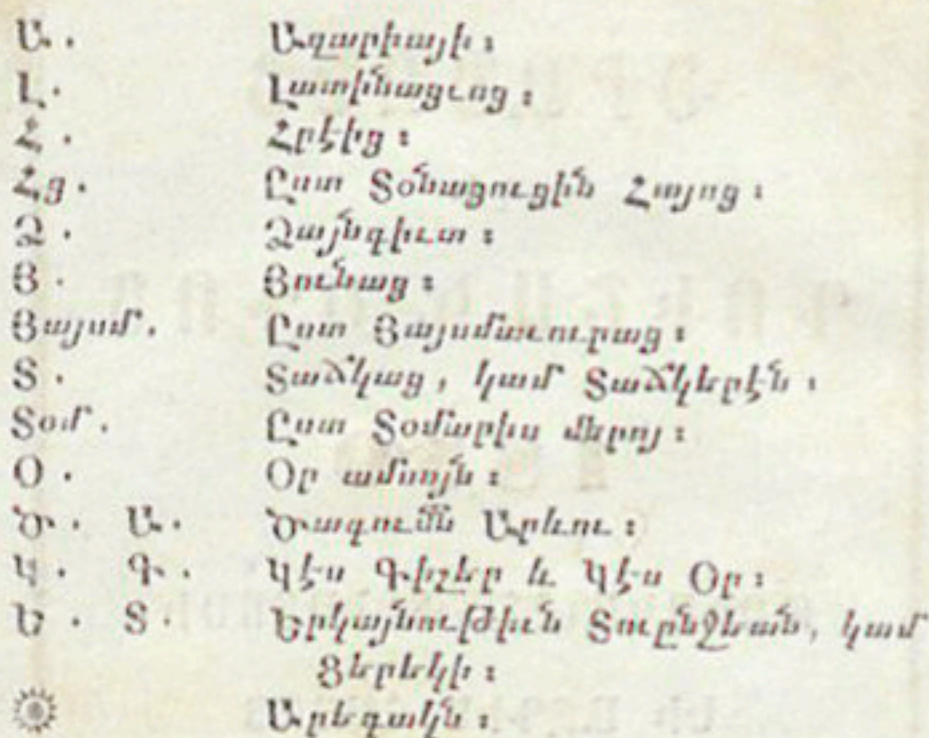 Ա. Ազարիայի:
Լ. Լատինացւոց:
Հ. Հրէից:
Հց. Ըստ Տօնացուցին Հայոց:
Ձ. Ձայնգիւտ:
Յ. Յունաց:
Յայսմ. Ըստ Յայսմաւուրաց:
Տ. Տաճկաց, կամ Տաճկերէն:
Տօմ. Ըստ Տօմարիս մերոյ:
Օ. Օր ամսոյն:
Ծ. Ա. Ծագումն Արևու:
Կ. Գ. Կէս Գիշեր և Կէս Օր:
Ե. Տ. Երկայնութիւն Տուընջեան, կամ
Ցերեկի:
Արեգակն: